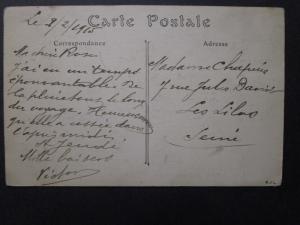 Carte Postale
Correspondance
Adresse
Le 8/2/1915
Ma chère Rose
J'ai eu un temps
épouvantable. De
la pluie tout le long
du voyage. Heureusement
qu'elle a cessée dans
l'après midi
A Jeudi
Mille baisers
Victor
Madame Chapuis
7 rue Jules David
Les Lilas
Seine